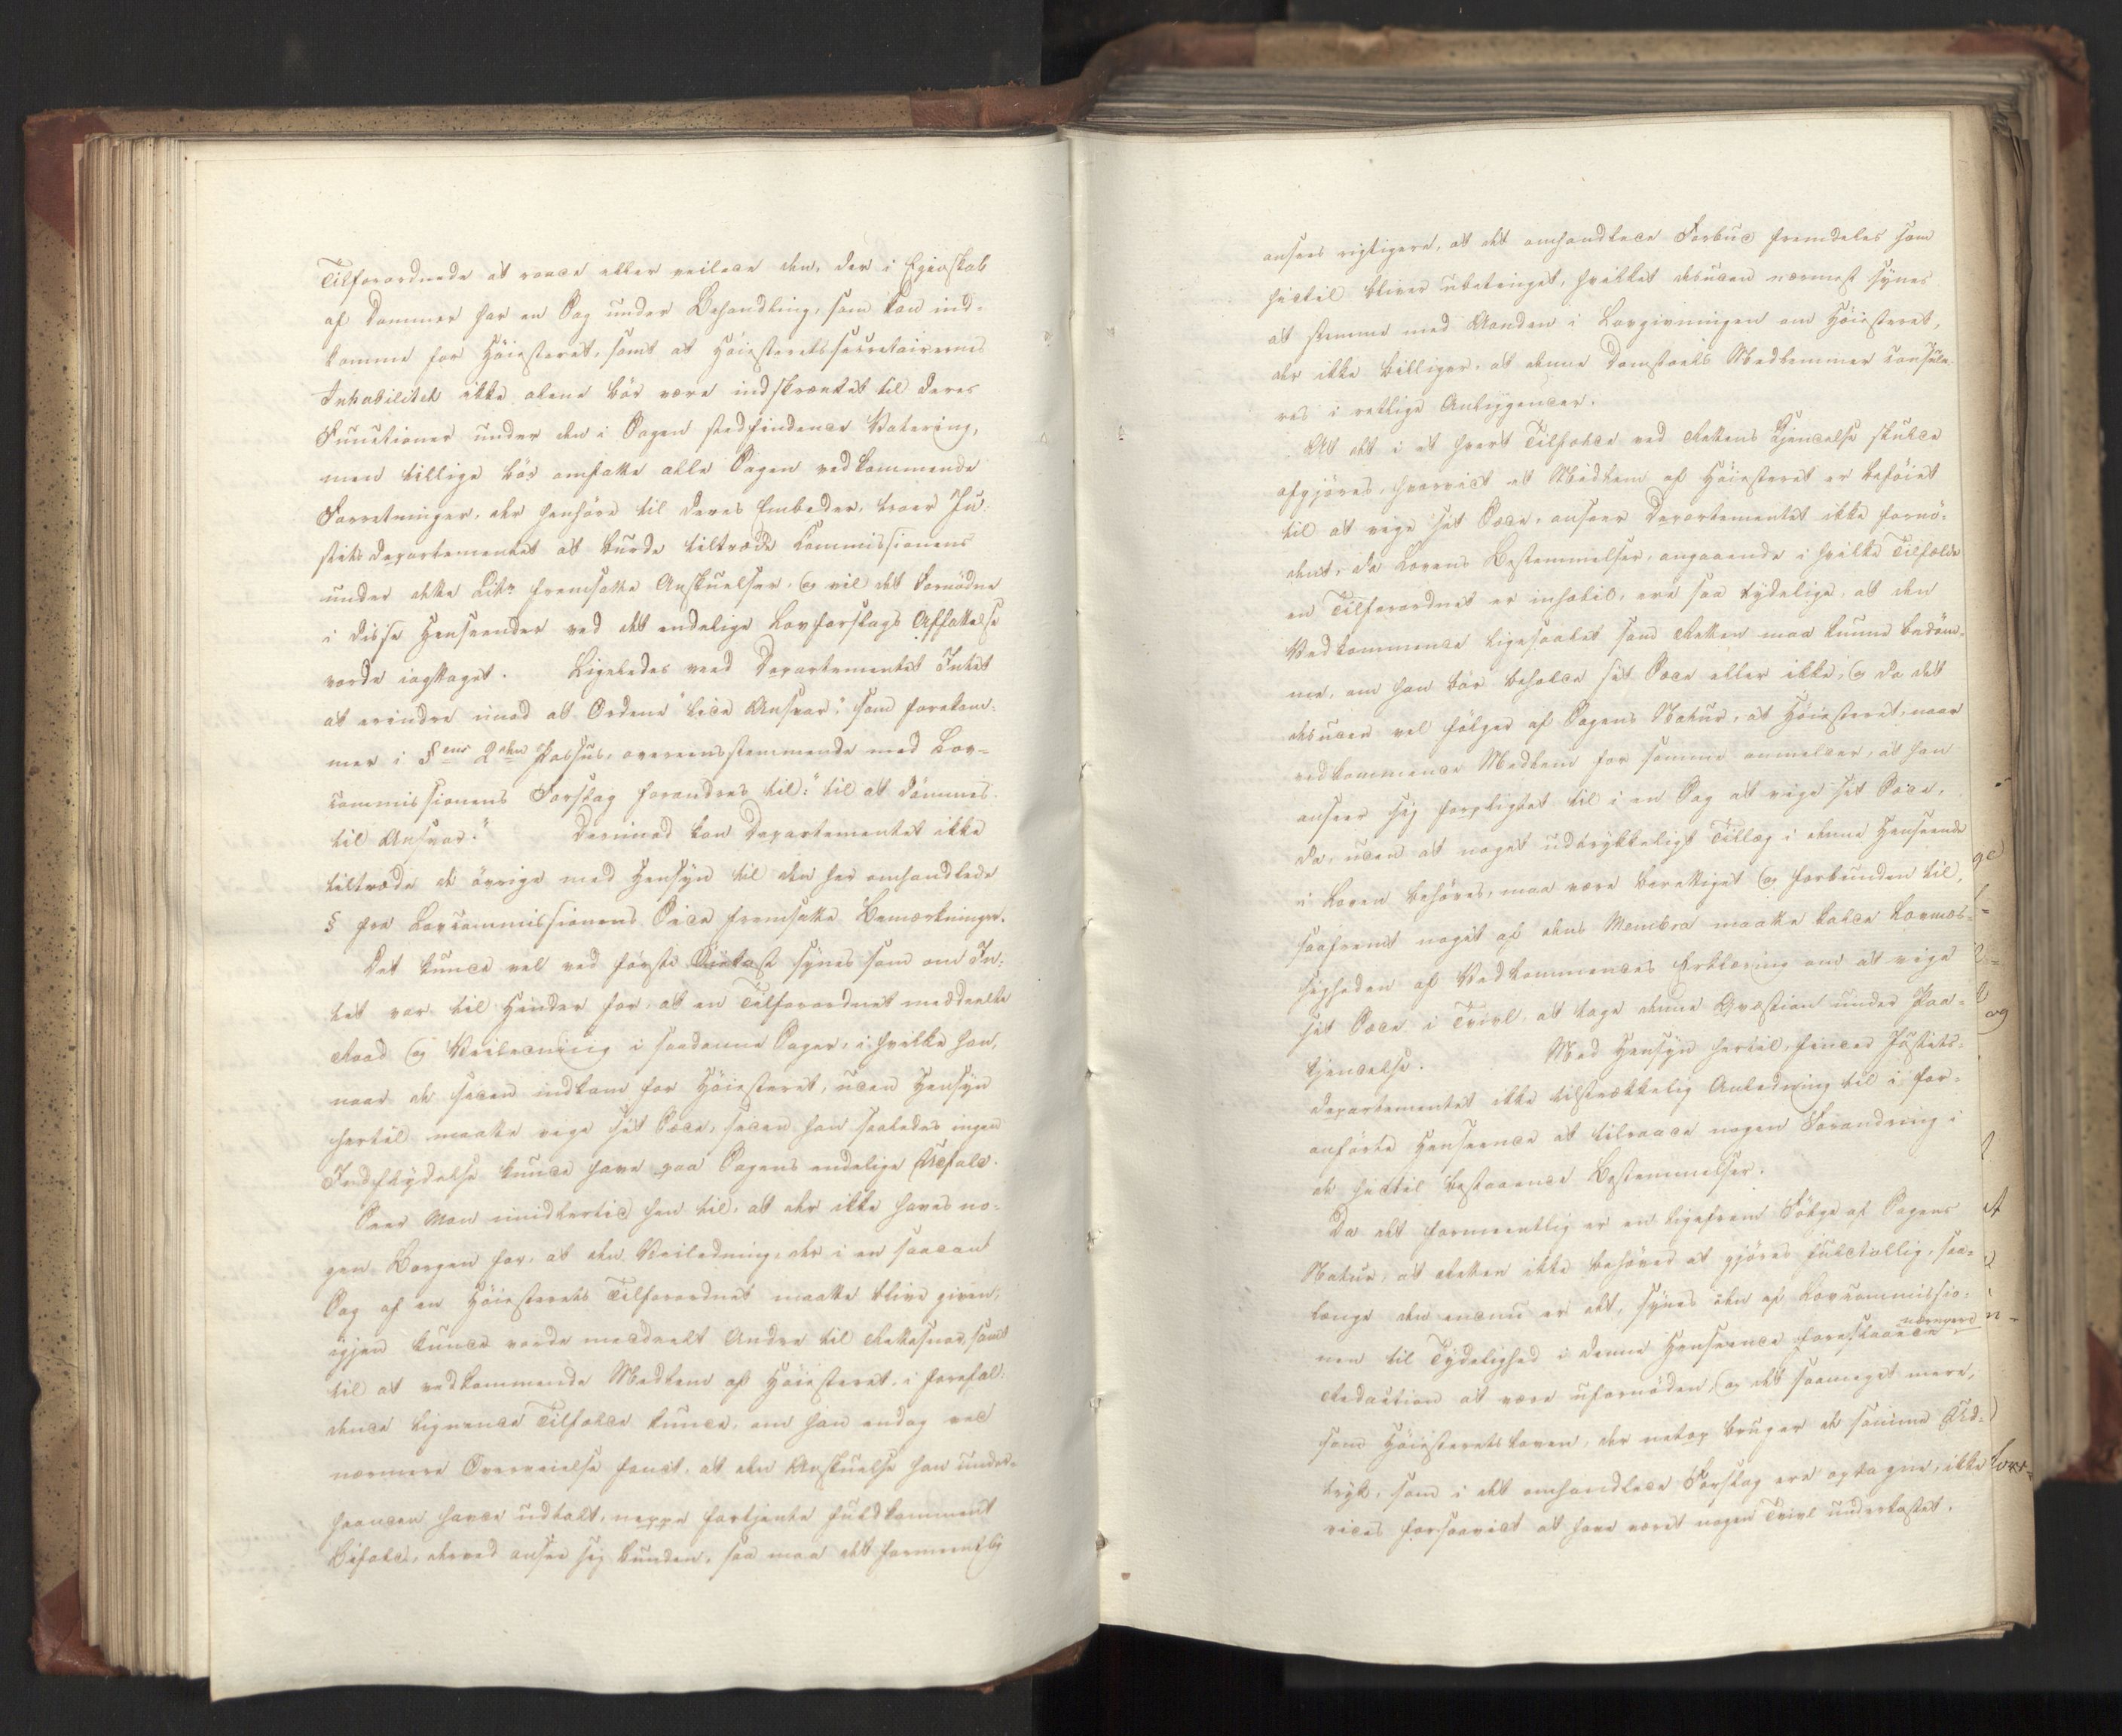 Tilforordnede at raade eller veilede den, der i Egenskab
af Dommer har en Sag under Behandling, som kan ind-
komme for Höiesteret, samt at Höiesteretssecretairernes
Inhabilitet ikke alene bör være indskrænket til deres
Functioner under den i Sagen stedfindende Votering,
men tillige bör omfatte alle Sagen vedkommende
Forretninger, der henhöre til deres Embeder, troer Ju-
stitsdepartementet at burde tiltræde Commissionens
under dette Litr. fremsatte Anskuelser, og vil det Fornödne
i disse Henseender ved det endelige Lovforslags Affattelse
vorde iagttaget. Ligeledes veed Departementet Intet
at erindre imod at Ordene "lide Ansvar" som forekom-
mer i §ens 2den Passus, overeensstemmende med Lov-
commissionens Forslag forandres til: "til at dömmes
til Ansvar." Derimod kan Departementet ikke
tiltræde de övrige med Hensyn til den her omhandlede
§ fra Lovcommissionens Side fremsatte Bemærkninger.
Det kunde vel ved förste Öiekast synes som om In-
tet var til Hinder for, at en Tilforordnet meddeelte
Raad og Veiledning i saadanne Sager, i hvilke han,
naar de siden indkom for Höiesteret, uden Hensyn
hertil maatte vige sit Sæde, siden han saaledes ingen
Indflydelse kunde have paa Sagens endelige Udfald.
Seer man imidlertid hen til, at der ikke haves no-
gen Borgen for, at den Veiledning, der i en saadan
Sag af en Höiesterets Tilforordnet maatte blive given,
igjen kunde vorde meddeelt Andre til Rettesnor, samt
til at vedkommende Medlem af Höiesteret i forefal-
dende lignende Tilfælde kunde, om han endog ved
nærmere Overveielse fandt, at den Anskuelse han under-
haanden havde udtalt, neppe fortjente fuldkomment
Bifald, derved ansee sig bunden, saa maa det formeentlig
ansees rigtigere, at det omhandlede Forbud fremdeles som
hidtil bliver ubetinget, hvilket desuden nærmest synes
at stemme med Aanden i Lovgivningen om Höiesteret,
der ikke billiger, at denne Domstoels Medlemmer consule-
res i retlige Anliggender.
At det i et hvert Tilfælde ved Rettens Kjendelse skulde
afgjöres, hvorvidt et Medlem af Höiesteret er beföiet
til at vige sit Sæde, anseer Departementet ikke fornö-
dent, da Lovens Bestemmelser, angaaende i hvilke Tilfælde
en Tilforordnet er inhabil, ere saa tydelige, at den
Vedkommende ligesaalet som Retten maa kunne bedöm-
me, om han bör beholde sit Sæde eller ikke, og da det
desuden vel fölger af Sagens Natur, at Höiesteret, naar
vedkommende Medlem for samme anmelder, at han
anseer sig forpligtet til i en Sag at vige sit Sæde,
da, uden at noget udtrykkeligt Tillæg i denne Henseende
i Loven behöves, maa være berettiget og forbunden til,
saafremt noget af dens Membra maatte kalde Lovmæs-
sigheden af Vedkommendes Erklæring om at vige
sit Sæde i Tvivl, at tage denne Qvæstion under Paa-
kjendelse. Med Hensyn hertil, finder Justits-
departementet ikke tilstrækkelig Anledning til i for-
anförte Henseende at tilraade nogen Forandring i
de hidtil bestaaende Bestemmelser.
Da det formeentlig er en ligefrem Fölge af Sagens
Natur, at Retten ikke behöver at gjöres fuldtallig, saa-
længe den endnu er det, synes den af Lovcommissio-
nen til Tydelighed i denne Henseende foreslaaede nærmere
Redaction at være ufornöden, og det saameget mere,
som Höiesteretsloven, der netop bruger de samme Ud-
tryk, som i det omhandlede Forslag ere optagne, ikke
vides forsaavidt at have været nogen Tvivl underkastet.